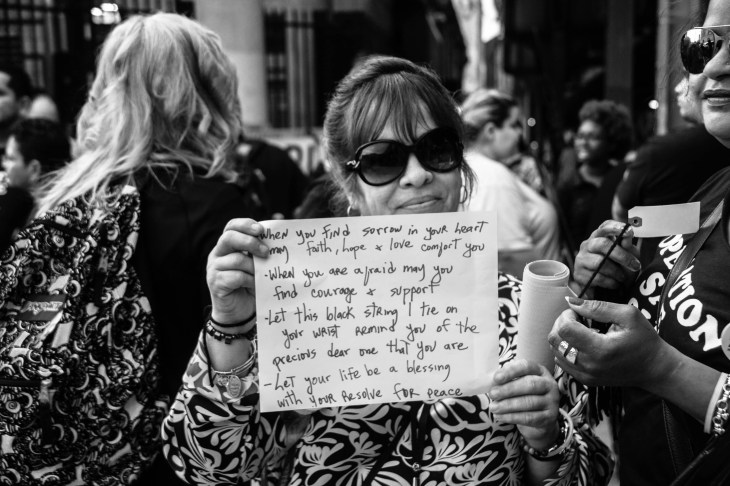 when you find sorrow in your heart
may faith, hope & love comfort you
-When you are afraid may you
find courage & support
-Let this black string I tie on
your wrist remind you of the
precious dear one that you are
-Let your life be a blessing
with your resolve for peace